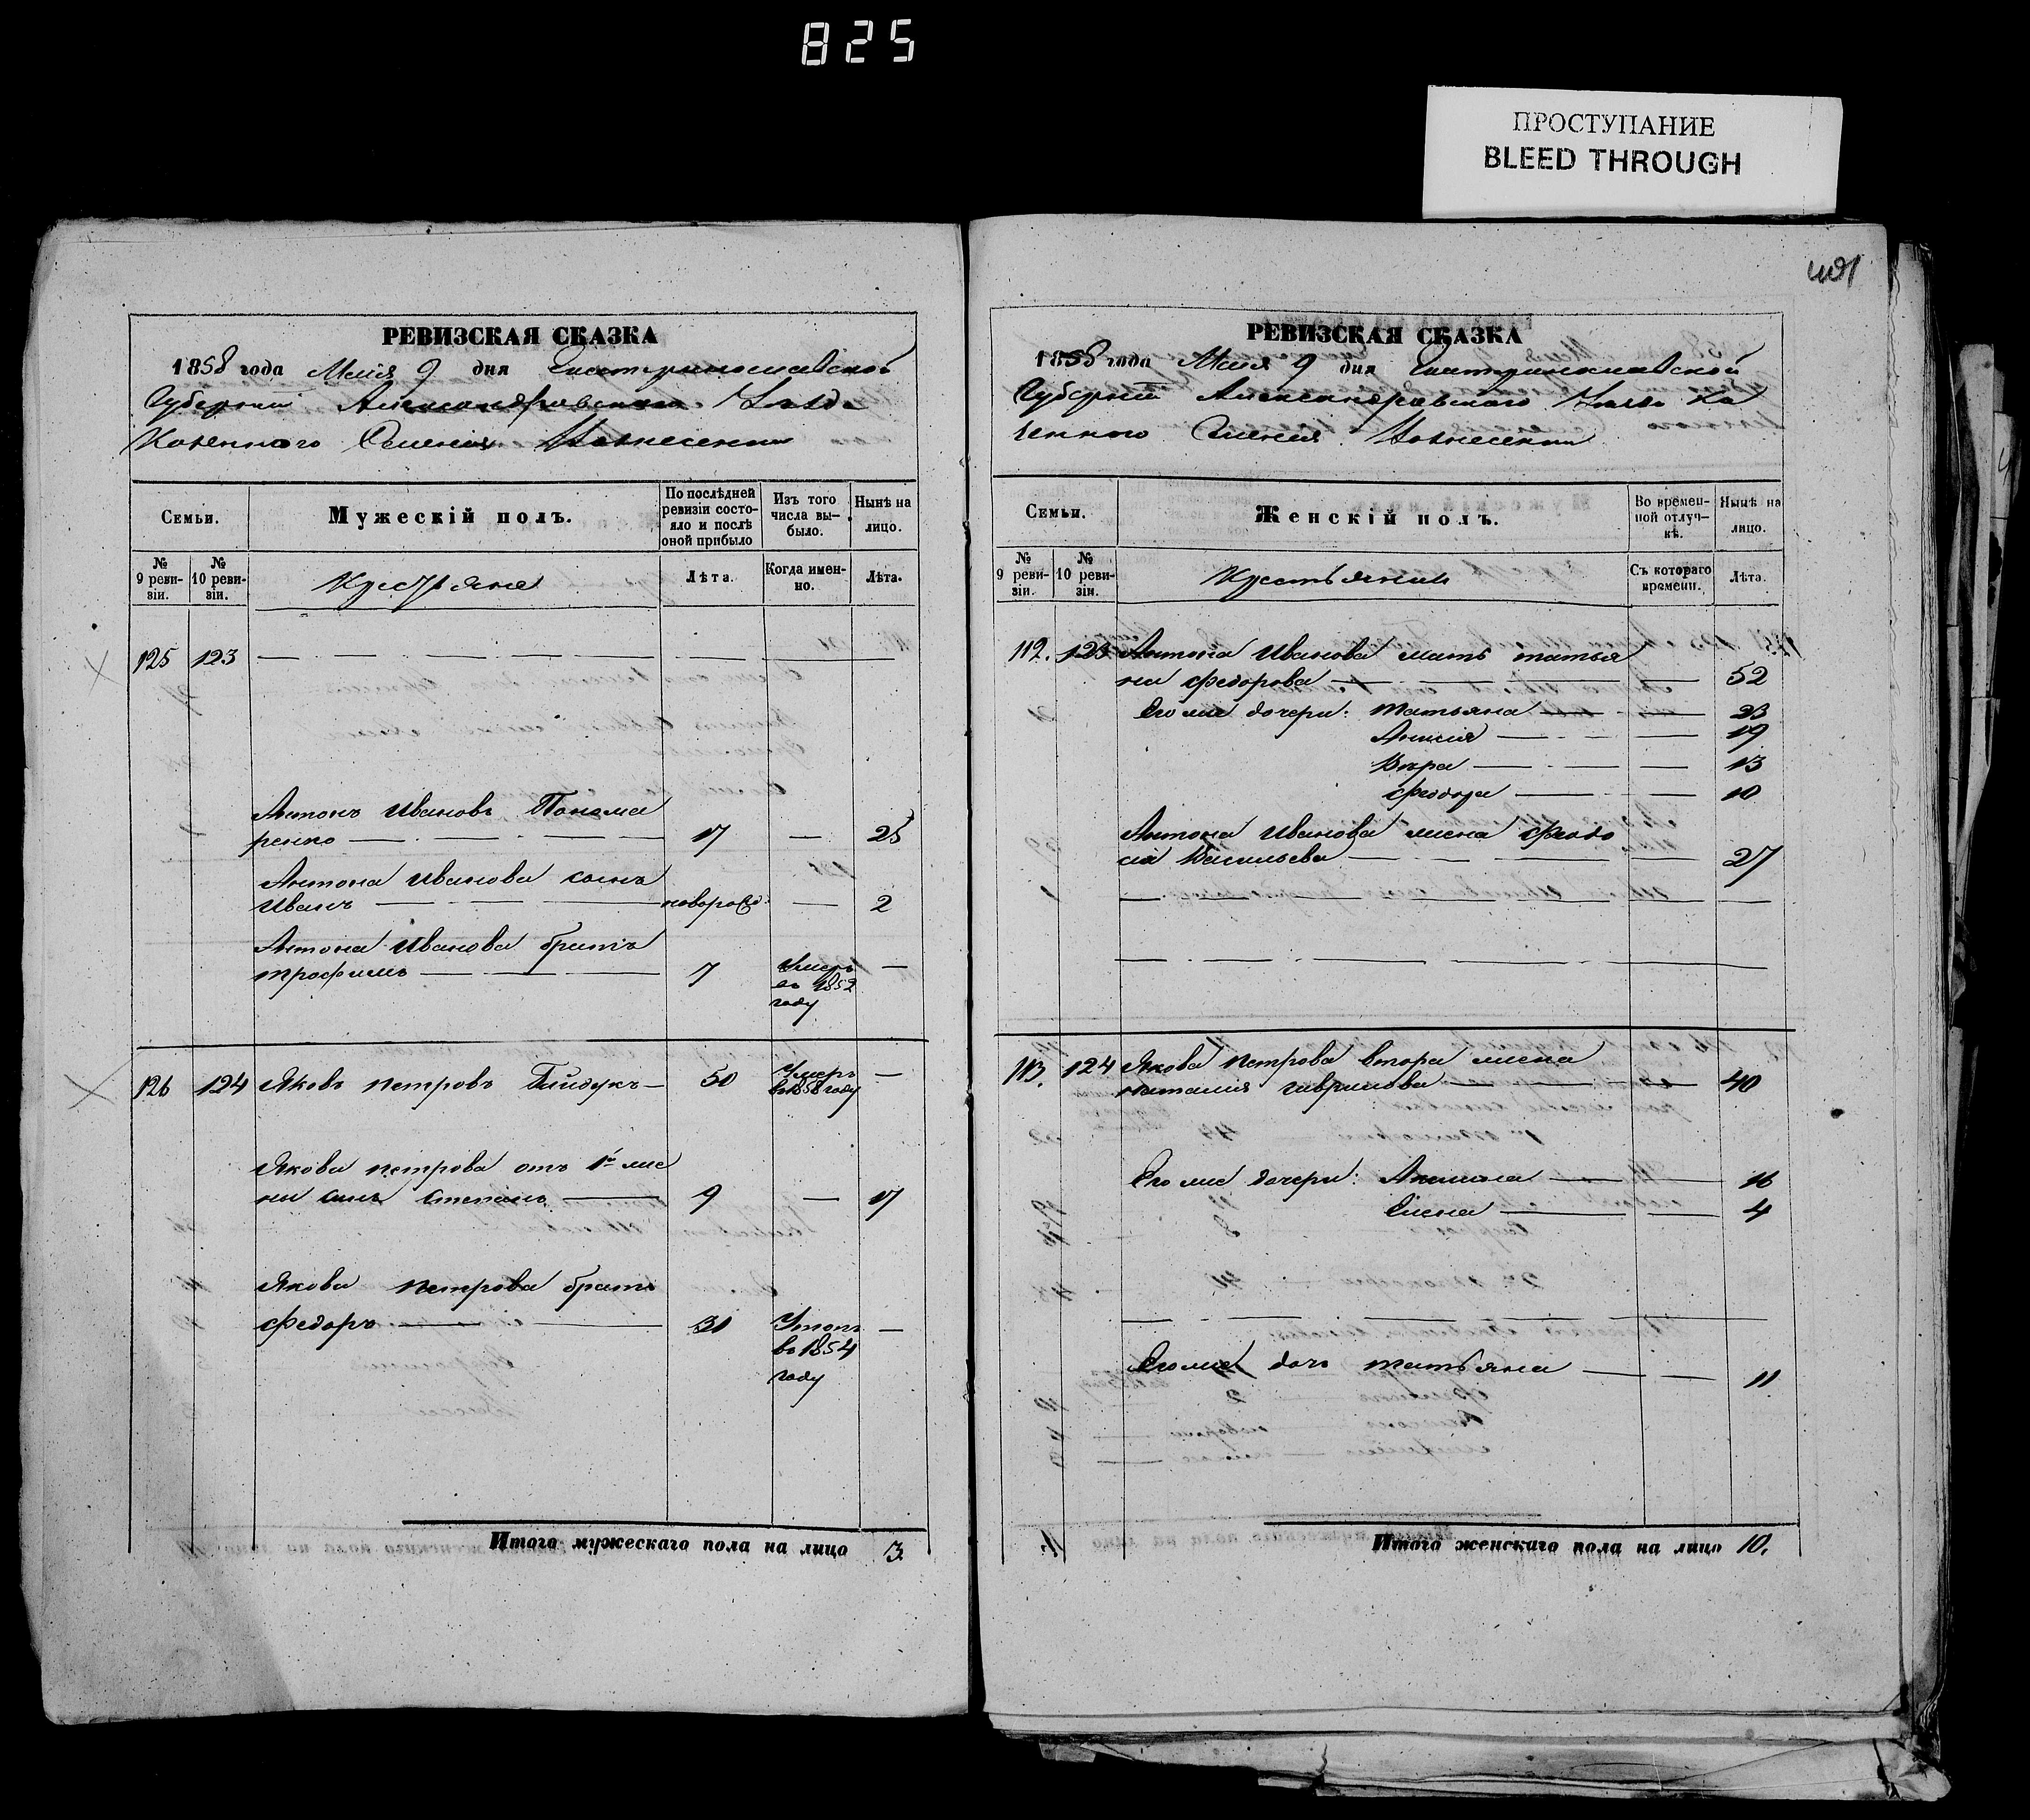 825
ПРОСТУПАНИЕ
BLEED THROUGH
РЕВИЗСКАЯ СКАЗКА
1858 года Мая 9 дня Екатеринославской
Губернии Александровского Уезда
Казенного Селения Вознесенки
Семьи.
Мужескій полъ.
По послѣдней
ревизіи состо-
яло и послѣ
оной прибыло
Изъ того
числа вы-
было.
Нынѣ на
лицо.
№
9 реви-
зіи.
№
10 реви-
зіи.
Крестьяне
Лѣта.
Когда имен-
но.
Лѣта.
125 123
Антонъ Ивановъ Понома
ренко 17 — 25
Антона Иванова сынъ
Иванъ новорожд. — 2
Антона Иванова братъ
трофимъ 7 Умеръ —
въ 1852
году
126 124 Яковъ петровъ 50 Умеръ —
въ 1858 году
Якова петрова отъ 1й же
ны сынъ степанъ 9 — 17
Якова петрова братъ
федоръ 31 —
въ 1854
году
Итого мужескаго пола на лицо 3.
РЕВИЗСКАЯ СКАЗКА
1858 года Мая 9 дня Екатеринославской
Губерніи Александровского Уезда Ка
зенного Селения Вознесенки
Семьи.
Женскій полъ.
Во времен-
ной отлуч-
кѣ.
Нынѣ на
лицо.
№
9 реви-
зіи.
№
10 реви-
зіи.
Крестьянки
Съ котораго
времени.
Лѣта.
112. 123 Антона Иванова мать татья
на федорова — 52
Его же дочери: татьяна — 23
Анисия — 19
Вѣра — 13
феодора — 10
Антона Иванова жена феодо
сія Васильева — 27
113. 124 Якова петрова втора жена
наталия гаврилова — 40
Его же дочери: Акилина — 16
Елена — 4
Его же дочь татьяна — 11
Итого женскаго пола на лицо 10.